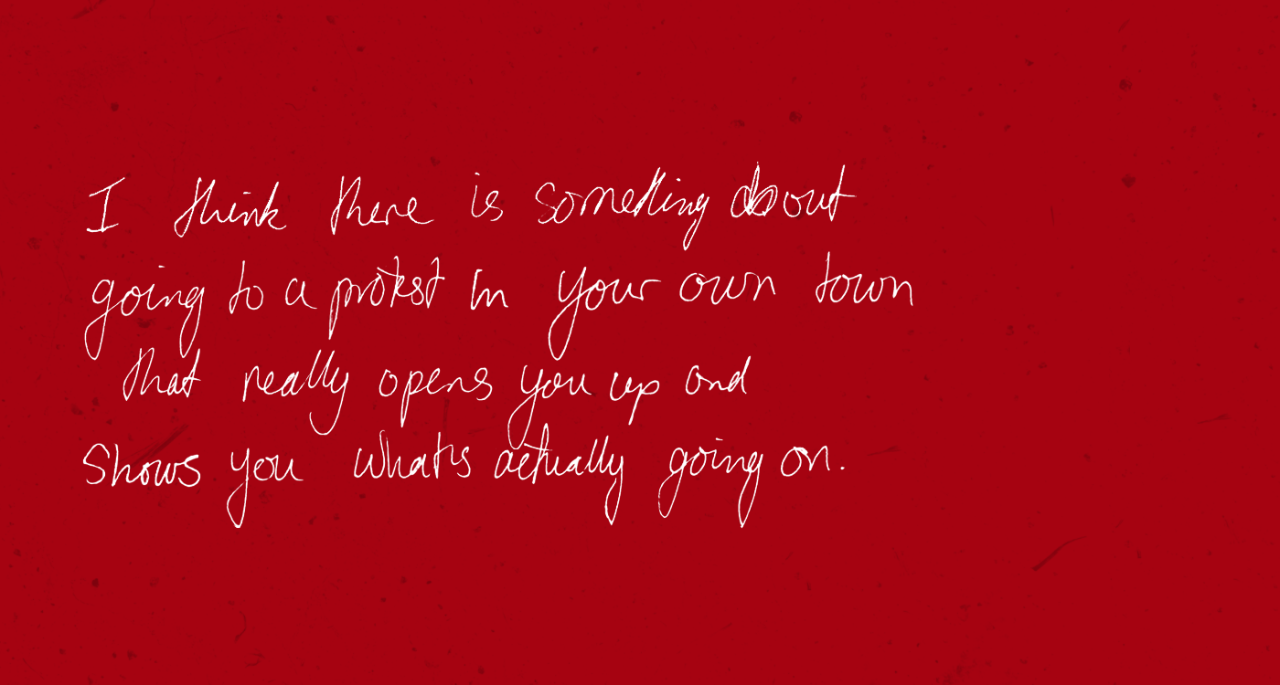 I think there is something about
going to a protest in your own town
that really opens you up and
shows you what's actually going on.